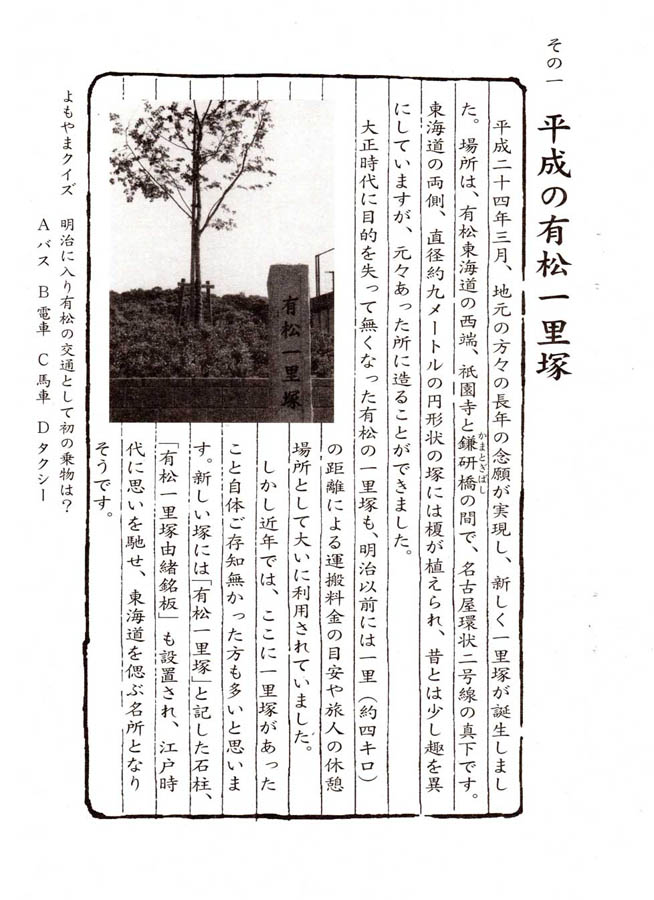 その一
平成の有松一里塚
平成二十四年三月、地元の方々の長年の念願が実現し、新しく一里塚が誕生しまし
た。場所は、有松東海道の西端、祇園寺と鎌研橋の間で、名古屋環状二号線の真下です。
かまとぎばし
東海道の両側、直径約九メートルの円形状の塚には榎が植えられ、昔とは少し趣を異
にしていますが、元々あった所に造ることができました。
大正時代に目的を失って無くなった有松の一里塚も、明治以前には一里（約四キロ）
の距離による運搬料金の目安や旅人の休憩
場所として大いに利用されていました。
しかし近年では、ここに一里塚があった
こと自体ご存知無かった方も多いと思いま
す。新しい塚には「有松一里塚」と記した石柱、
「有松一里塚由緒銘板」も設置され、江戸時
代に思いを馳せ、東海道を偲ぶ名所となり
そうです。
有松一里塚
よもやまクイズ 明治に入り有松の交通として初の乗物は？
A バス B 電車 C 馬車 D タクシー